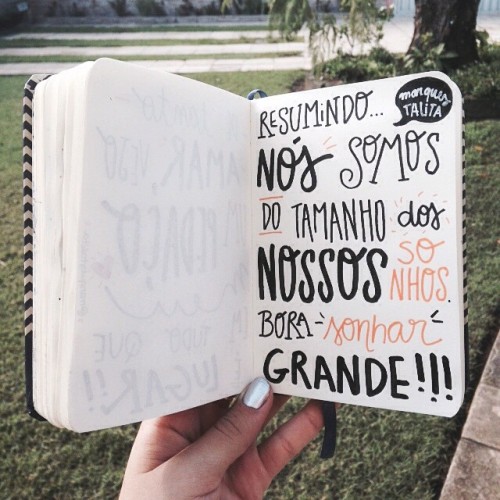 RESUMiNDO...
marques
TALiTA
NÓS SOMOS
DO TAMANHO dos
NOSSOS SO
NHOS.
BORA-sonhar-
GRANDE!!!